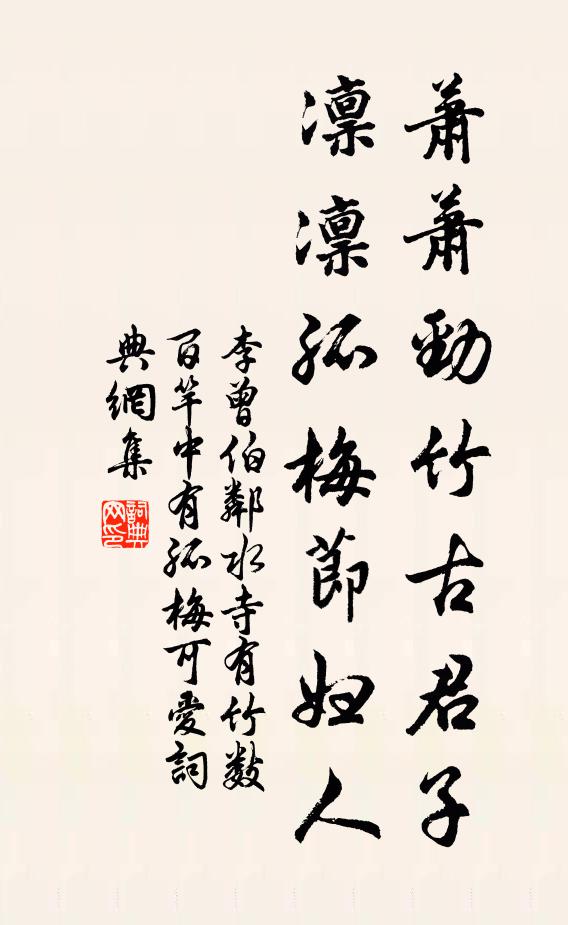 蕭蕭勁竹古君子
凛凛孤梅節妇人
李曾伯鄰水寺有竹数
百竿中有孤梅可愛詞
典網集
詞典
网印